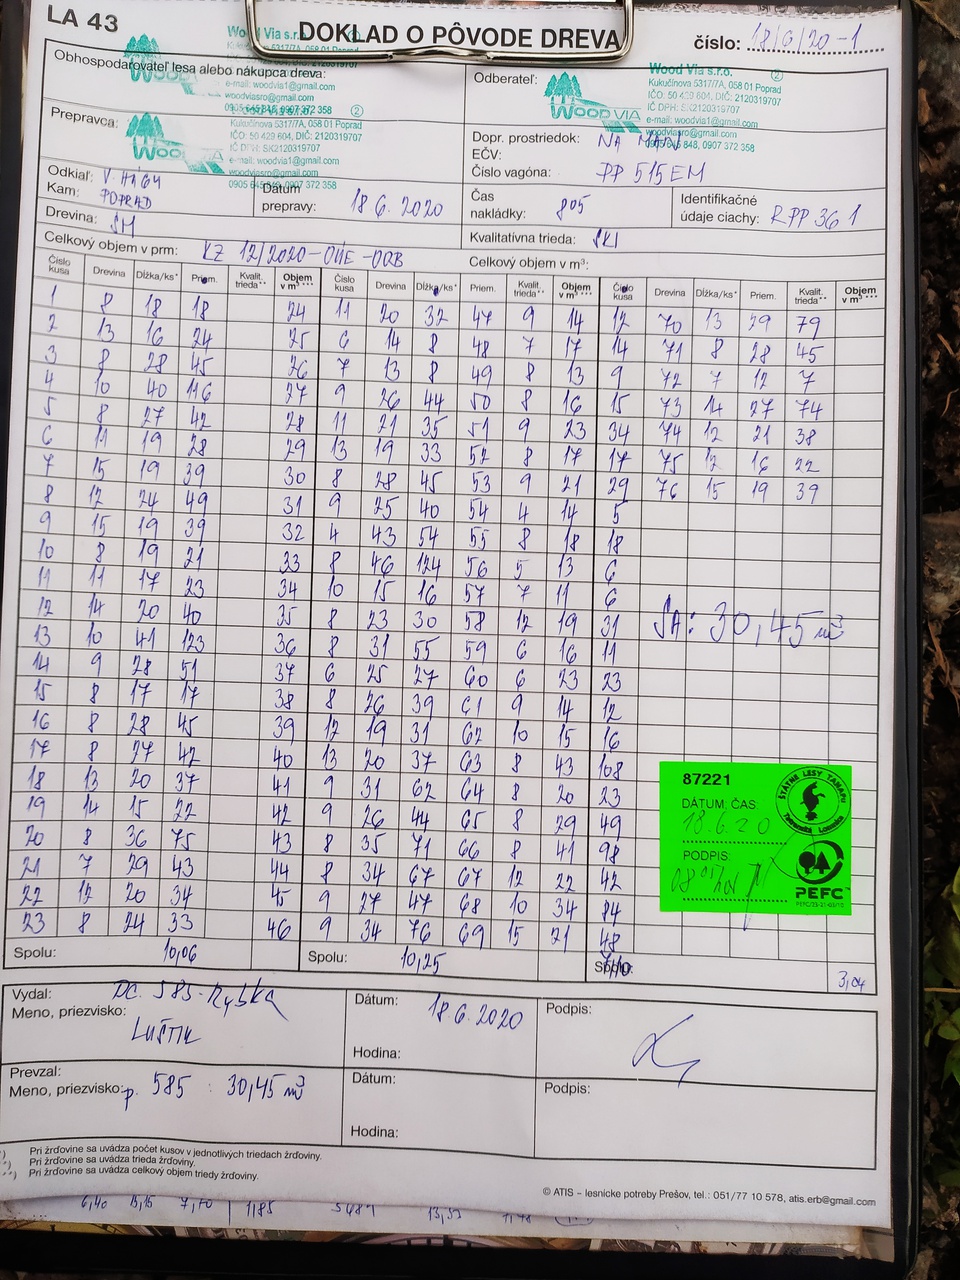 LA 43
DOKLAD O PÔVODE DREVA
číslo: 18/6/20-1
Obhospodarovateľ lesa alebo nákupca dreva:
Wood Via s.r.o.
Kukučínova 5317/7A, 058 01 Poprad
e-mail: woodvia1@gmail.com
woodviasro@gmail.com
0905 645 848, 0907 372 358
Odberateľ:
WOOD VIA
Wood Via s.r.o.
Kukučínova 5317/7A, 058 01 Poprad
IČO: 50 429 604, DIČ: 2120319707
IČ DPH: SK2120319707
Prepravca:
Wood
Kukučínova 5317/7A, 058 01 Poprad
IČO: 50 429 604, DIČ: 2120319707
IČ DPH: SK2120319707
e-mail: woodvia1@gmail.com
woodviasro@gmail.com
0905 645 848, 0907 372 358
Dopr. prostriedok: NA MAN
EČV:
Číslo vagóna: PP 515EM
Odkiaľ: V. HÁGY
Kam: POPRAD
Dátum prepravy: 18 6. 2020
Čas nakládky: 805
Identifikačné údaje ciachy: RPP 36 1
Drevina: SM
Kvalitatívna trieda: SKI
Celkový objem v prm: KZ 12/2020-OIIE-OOB
Celkový objem v m³:
Číslo kusa Drevina Dĺžka/ks* Priem. Kvalit. trieda** Objem v m³ *** Číslo kusa Drevina Dĺžka/ks* Priem. Kvalit. trieda** Objem v m³ *** Číslo kusa Drevina Dĺžka/ks* Priem. Kvalit. trieda** Objem v m³ ***
1 8 18 18 24 11 20 32 47 9 14 12 70 13 29 79
2 13 16 24 25 6 14 8 48 7 17 14 71 8 28 45
3 8 28 45 26 7 13 8 49 8 13 9 72 7 12 7
4 10 40 116 27 9 26 44 50 8 16 15 73 14 27 74
5 8 27 42 28 11 21 35 51 9 23 34 74 12 21 38
6 11 19 28 29 13 19 33 52 8 17 17 75 12 16 22
7 15 19 39 30 8 28 45 53 9 21 29 76 15 19 39
8 12 24 49 31 9 25 40 54 4 14 5
9 15 19 39 32 4 43 54 55 8 18 18
10 8 19 21 33 8 46 124 56 5 13 6
11 11 17 23 34 10 15 16 57 7 11 6
12 14 20 40 35 8 23 30 58 12 19 31
13 10 41 123 36 8 31 55 59 6 16 11
SA: 30,45 m³
14 9 28 51 37 6 25 27 60 6 23 23
15 8 17 17 38 8 26 39 61 9 14 12
16 8 28 45 39 12 19 31 62 10 15 16
17 8 27 42 40 13 20 37 63 8 43 108
18 13 20 37 41 9 31 62 64 8 20 23
19 14 15 22 42 9 26 44 65 8 29 49
20 8 36 75 43 8 35 71 66 8 41 98
21 7 29 43 44 8 34 67 67 12 22 42
22 12 20 34 45 9 27 47 68 10 34 84
23 8 24 33 46 9 34 76 69 15 21 48
87221
ŠTÁTNE LESY TANAPU
Tatranská Lomnica
DÁTUM: ČAS:
18.6.20
PODPIS:
PEFC
Spolu: 10,06
Spolu: 10,25
Spolu: 7,10
3,04
Vydal: DC. 585-Rybka
Meno, priezvisko: LUŠTIK
Dátum: 18.6.2020
Hodina:
Podpis:
Prevzal:
Meno, priezvisko: p. 585 : 30,45 m³
Dátum:
Hodina:
Podpis:
Pri žrďovine sa uvádza počet kusov v jednotlivých triedach žrďoviny.
Pri žrďovine sa uvádza trieda žrďoviny.
Pri žrďovine sa uvádza celkový objem triedy žrďoviny.
© ATIS – lesnícke potreby Prešov, tel.: 051/77 10 578, atis.erb@gmail.com